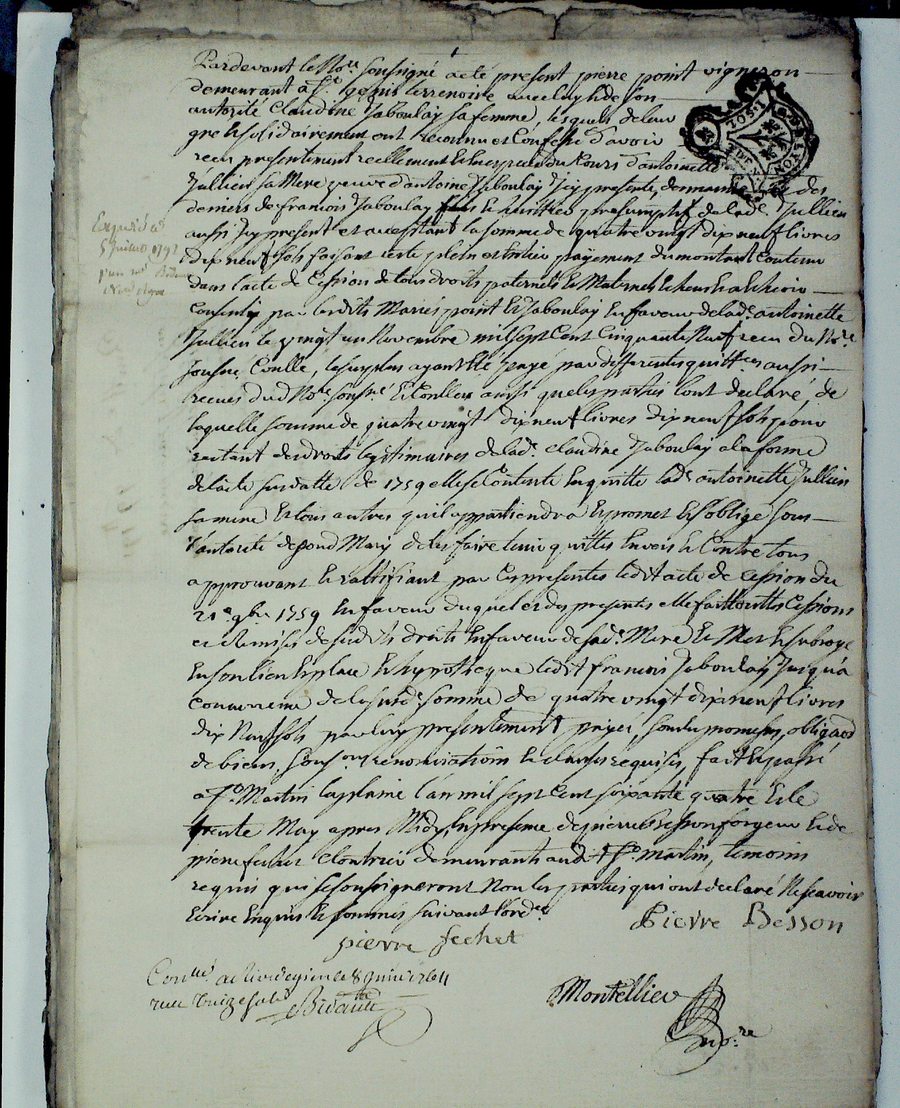 Pardevant le No.re soussigné a eté present pierre point vigneron
demeurant a St genis terrenoire avec luy & de son
autorité Claudine Jaboulay sa femme, lesquels de leur
gré & solidairement ont reconnu et Confessé d'avoir
receu presentement reellement du Cours d'antoinette
Jullien sa Mere veuve d'antoine Jaboulay Icy presente des
deniers de francois Jaboulay presumptif de lad.e Jullien
aussi Icy present et acceptant la somme de quatre vingt dix neuf livres
dix neuf sols faisant reste plein et entier payement du montant Contenu
dans l'acte de Cession de tous droits paternels & Maternels
Consenty par lesdits Mariés point & Jaboulay en faveur de lad.e antoinette
Jullien le vingt un Novembre mil sept Cent Cinquante Neuf receu du No.re
le surplus ayant été payé par differentes quitt.ces aussi
receues dud No.re ainsi que les parties l'ont declaré, de
laquelle somme de quatre vingt dix neuf livres dix neuf sols pour
restant des droits legitimaires de lad.e Claudine Jaboulay a la forme
de l'acte susdatté de 1759 elle se Contente en quitte lad.e antoinette Jullien
sa mere & tous autres qu'il appartiendra & promet & s'oblige sous
l'autorité de sond Mary de les faire tenir quittes Envers & Contre tous
approuvant & rattifiant par Ces presentes ledit acte de Cession du
21e 9bre 1759 en faveur duquel et des presentes elle fait touttes Cessions
et Remises desdits droits En faveur de sad.e Mere & Met & subroge
En son lieu & place & hypotheque ledit francois Jaboulay Jusqu'a
Concurrence de la susd.e somme de quatre vingt dix neuf livres
dix Neuf sols par luy presentement payés, sous promesses, obligaõn
de biens, renonciations & clauses requises, fait & passé
a St Martin la plaine l'an mil sept Cent soixante quatre & le
trente May apres Midy En presence de pierre Besson forgeur & de
pierre fechet Cloutrier demeurants aud St Martin, temoins
requis qui se soussigneront Non les parties qui ont declaré Ne scavoir
Ecrire Enquis & sommés suivant l'ord.ce
Pierre Besson
pierre fechet
Con.llé a Rivedegier le 8 Juin 1764
receu treize sols
Montellier
no.re
Expedié le
5 Juillet 1792